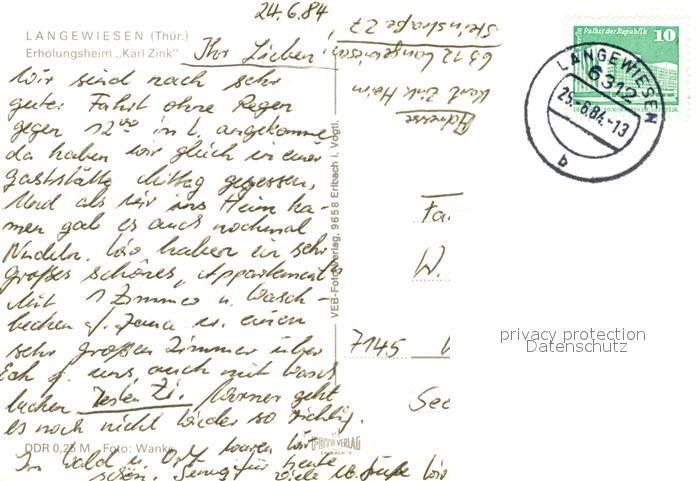 24.6.84
LANGEWIESEN (Thür.)
Erholungsheim „Karl Zink"
Ihr Lieben!
Wir sind nach sehr
guter Fahrt ohne Regen
gegen 12⁰⁰ in L. angekommen
da haben wir gleich in einer
Gaststätte Mittag gegessen,
Und als wir ins Heim ka-
men gab es auch nochmal
Nudeln. Wir haben ein sehr
großes schönes Appartement
Mit 1 Zimmer u. Wasch-
becken f. Jana u. einen
sehr großen Zimmer über
Eck f. uns auch mit Wasch
becken
es noch nicht wieder so richtig.
Im Wald u. Ort waren wir
schön. Genug für heute viele
DDR 0,25 M Foto: Wanke
VEB-Foto-Verlag, 9658 Erlbach i. Vogtl.
FOTO VERLAG
Adresse
Karl Zink Heim
6312 Langewiesen
Steinstraße 27
Palast der Republik 10
DDR
LANGEWIESEN
6312
25.-6.84.-13
b
Fa
W.
7145
See
privacy protection
Datenschutz